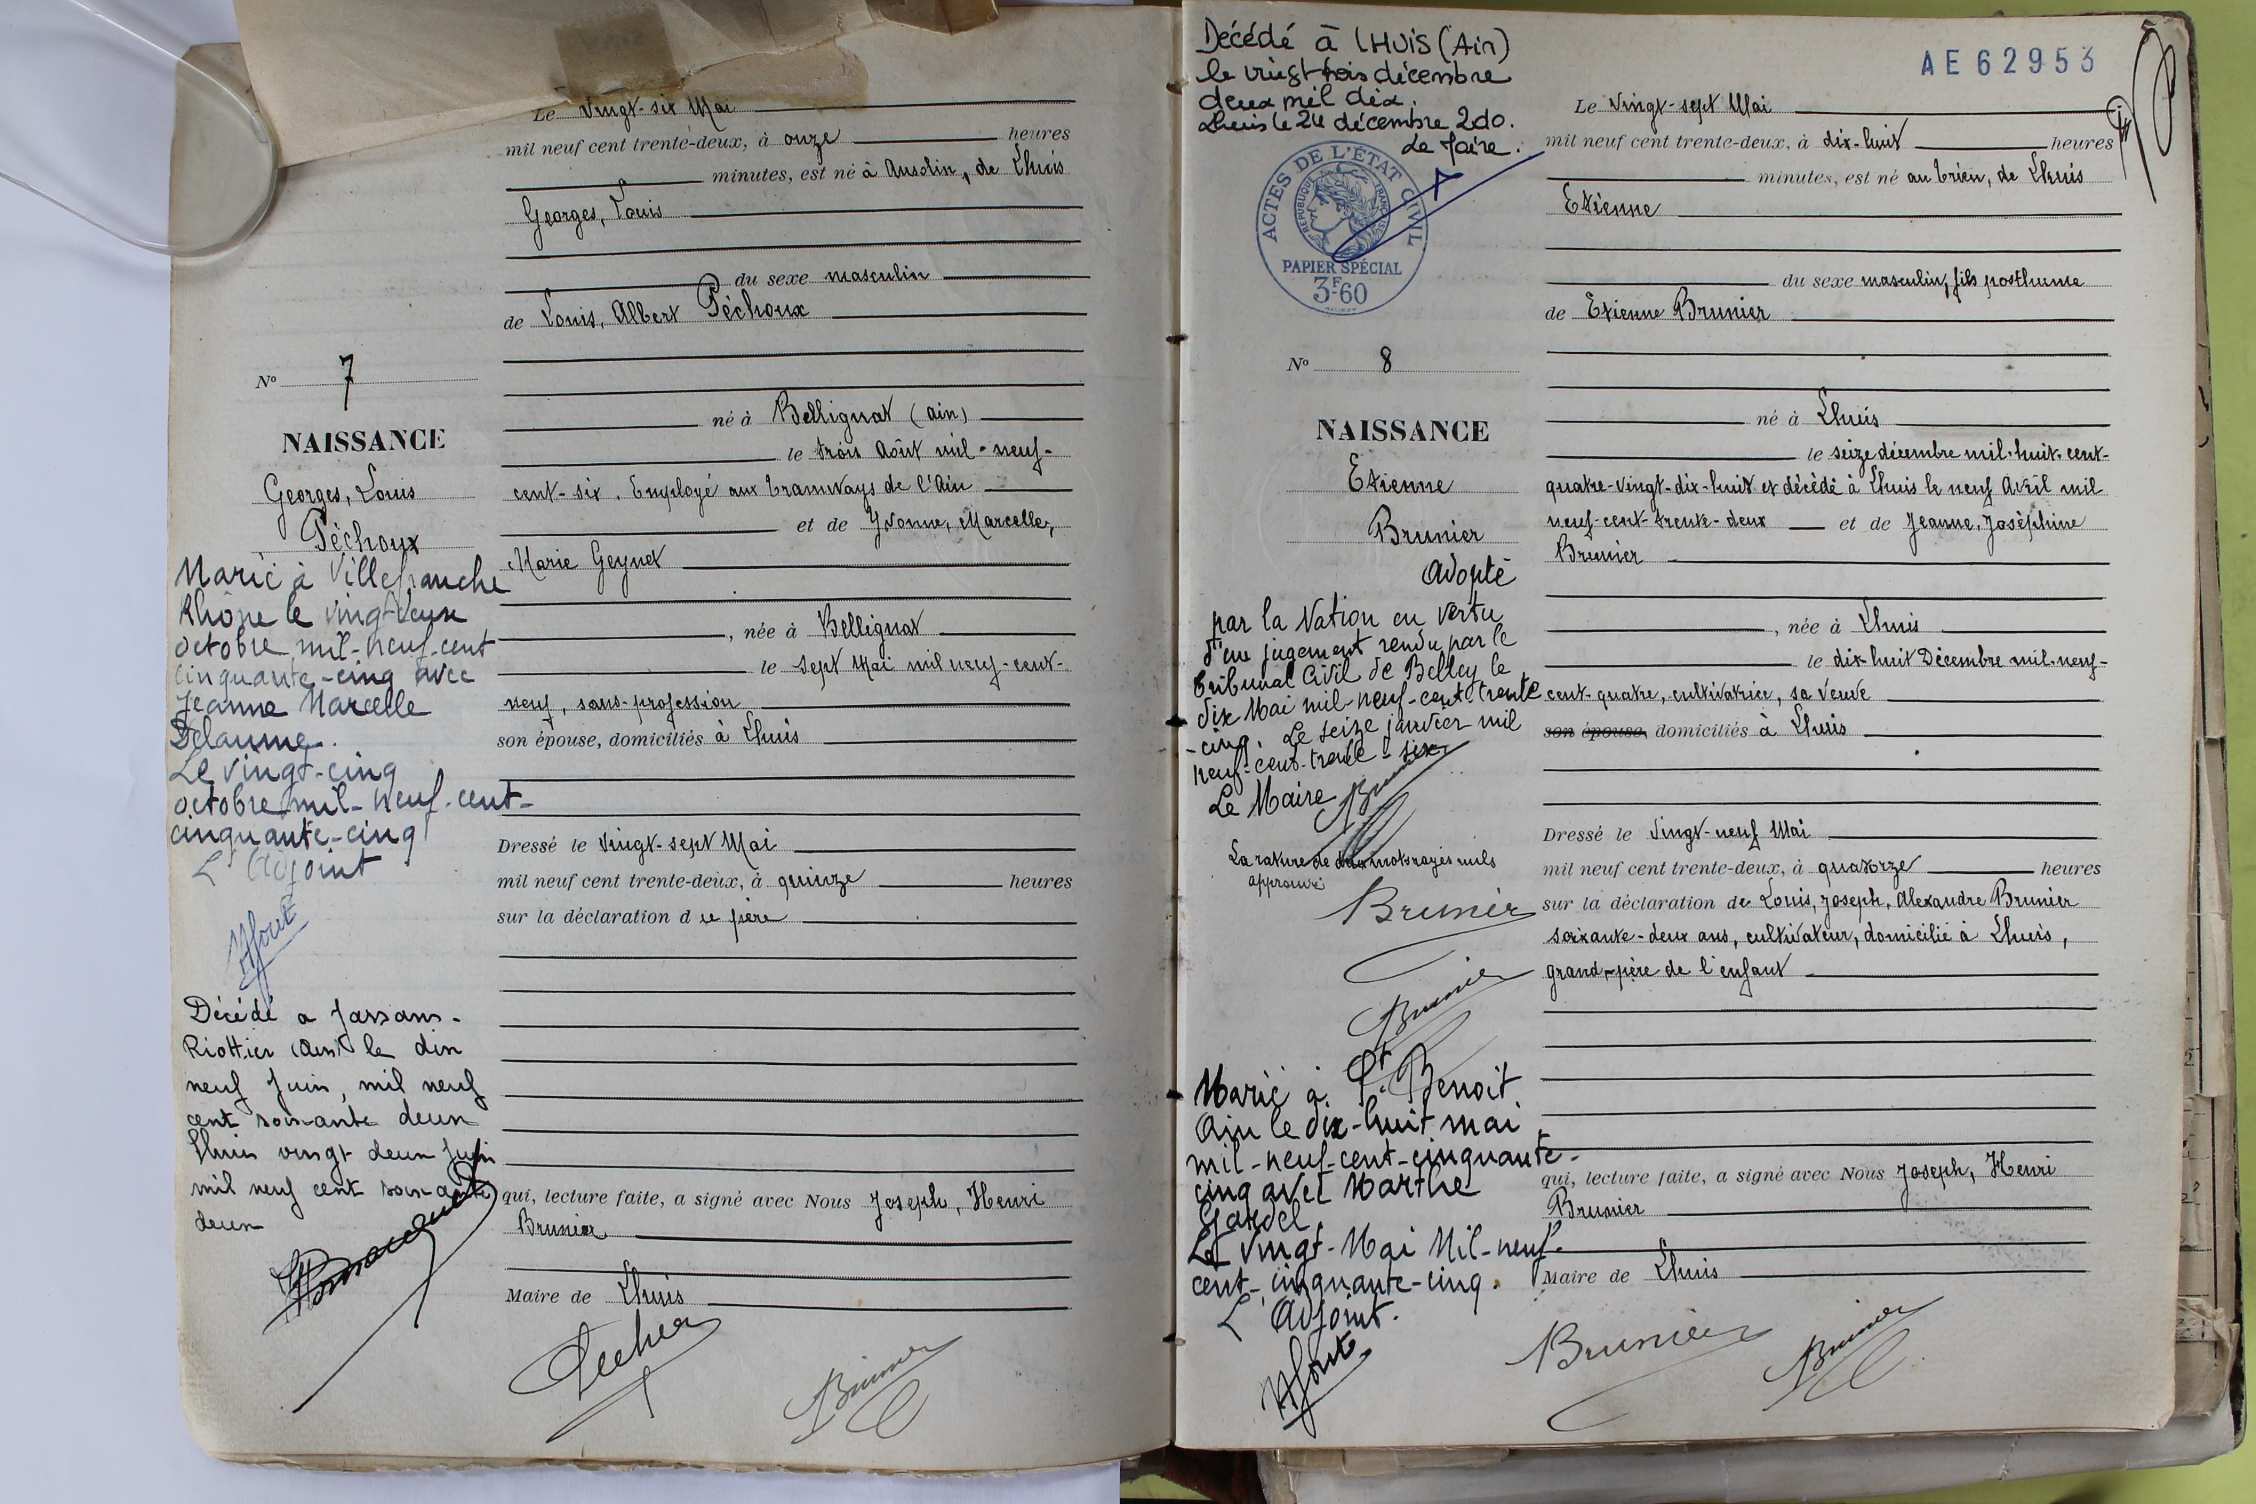 Le Vingt-six Mai
mil neuf cent trente-deux, à onze heures
minutes, est né à Ansolin, de Lhuis
Georges, Louis
du sexe masculin
de Louis, Albert Péchoux
né à Bellignat (Ain)
le trois Août mil-neuf-
cent-six. Employé aux tramways de l'Ain
et de Yvonne, Marcelle,
Marie Geynet
, née à Bellignat
le sept Mai mil neuf-cent-
neuf, sans-profession
son épouse, domiciliés à Lhuis
Dressé le Vingt-sept Mai
mil neuf cent trente-deux, à quinze heures
sur la déclaration du père
qui, lecture faite, a signé avec Nous Joseph, Henri
Brunier
Maire de Lhuis
Brunier
No 7
NAISSANCE
Georges, Louis
Péchoux
Marié à Villefranche
Rhône le vingt-deux
octobre mil-neuf-cent
cinquante-cinq avec
Jeanne Marcelle
Delaume.
Le vingt-cinq
octobre mil-neuf-cent-
cinquante-cinq
L'Adjoint
Décédé a Jassans-
Riottier (Ain) le dix
neuf Juin, mil neuf
cent soixante deux
Lhuis vingt deux Juin
mil neuf cent soixante
deux
Décédé à LHUIS (Ain)
le vingt trois décembre
deux mil dix.
Lhuis le 24 décembre 2010.
Le Maire.
ACTES DE L'ÉTAT CIVIL
RÉPUBLIQUE FRANÇAISE
PAPIER SPÉCIAL
3F60
No 8
NAISSANCE
Etienne
Brunier
Adopté
par la Nation en vertu
d'un jugement rendu par le
Tribunal Civil de Belley le
dix Mai mil-neuf-cent-trente
-cinq. Le seize janvier mil
neuf-cent-trente-six
Le Maire
Brunier
La rature de deux mots rayés nuls
approuvé
Brunier
Brunier
Marié à St. Benoit
Ain le dix-huit mai
mil-neuf-cent-cinquante-
cinq avec Marthe
Le Vingt-Mai Mil-neuf-
cent-cinquante-cinq.
L'Adjoint.
AE62953
Le Vingt-sept Mai
mil neuf cent trente-deux, à dix-huit heures
minutes, est né au Crieu, de Lhuis
Etienne
du sexe masculin, fils posthume
de Etienne Brunier
né à Lhuis
le seize décembre mil-huit-cent-
quatre-vingt-dix-huit et décédé à Lhuis le neuf Avril mil
neuf-cent-trente-deux et de Jeanne, Joséphine
Brunier
, née à Lhuis
le dix huit Décembre mil-neuf-
cent-quatre, cultivatrice, sa veuve
son épouse, domiciliés à Lhuis
Dressé le Vingt-neuf Mai
mil neuf cent trente-deux, à quatorze heures
sur la déclaration de Louis, Joseph, Alexandre Brunier
soixante-deux ans, cultivateur, domicilié à Lhuis,
grand-père de l'enfant
qui, lecture faite, a signé avec Nous Joseph, Henri
Brunier
Maire de Lhuis
Brunier
Brunier